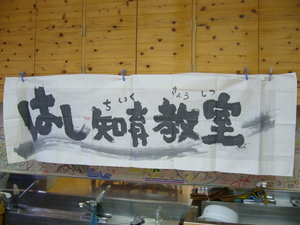 はし知育教室
ちいく きょうしつ